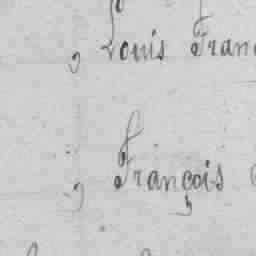 , Louis Fran
, François